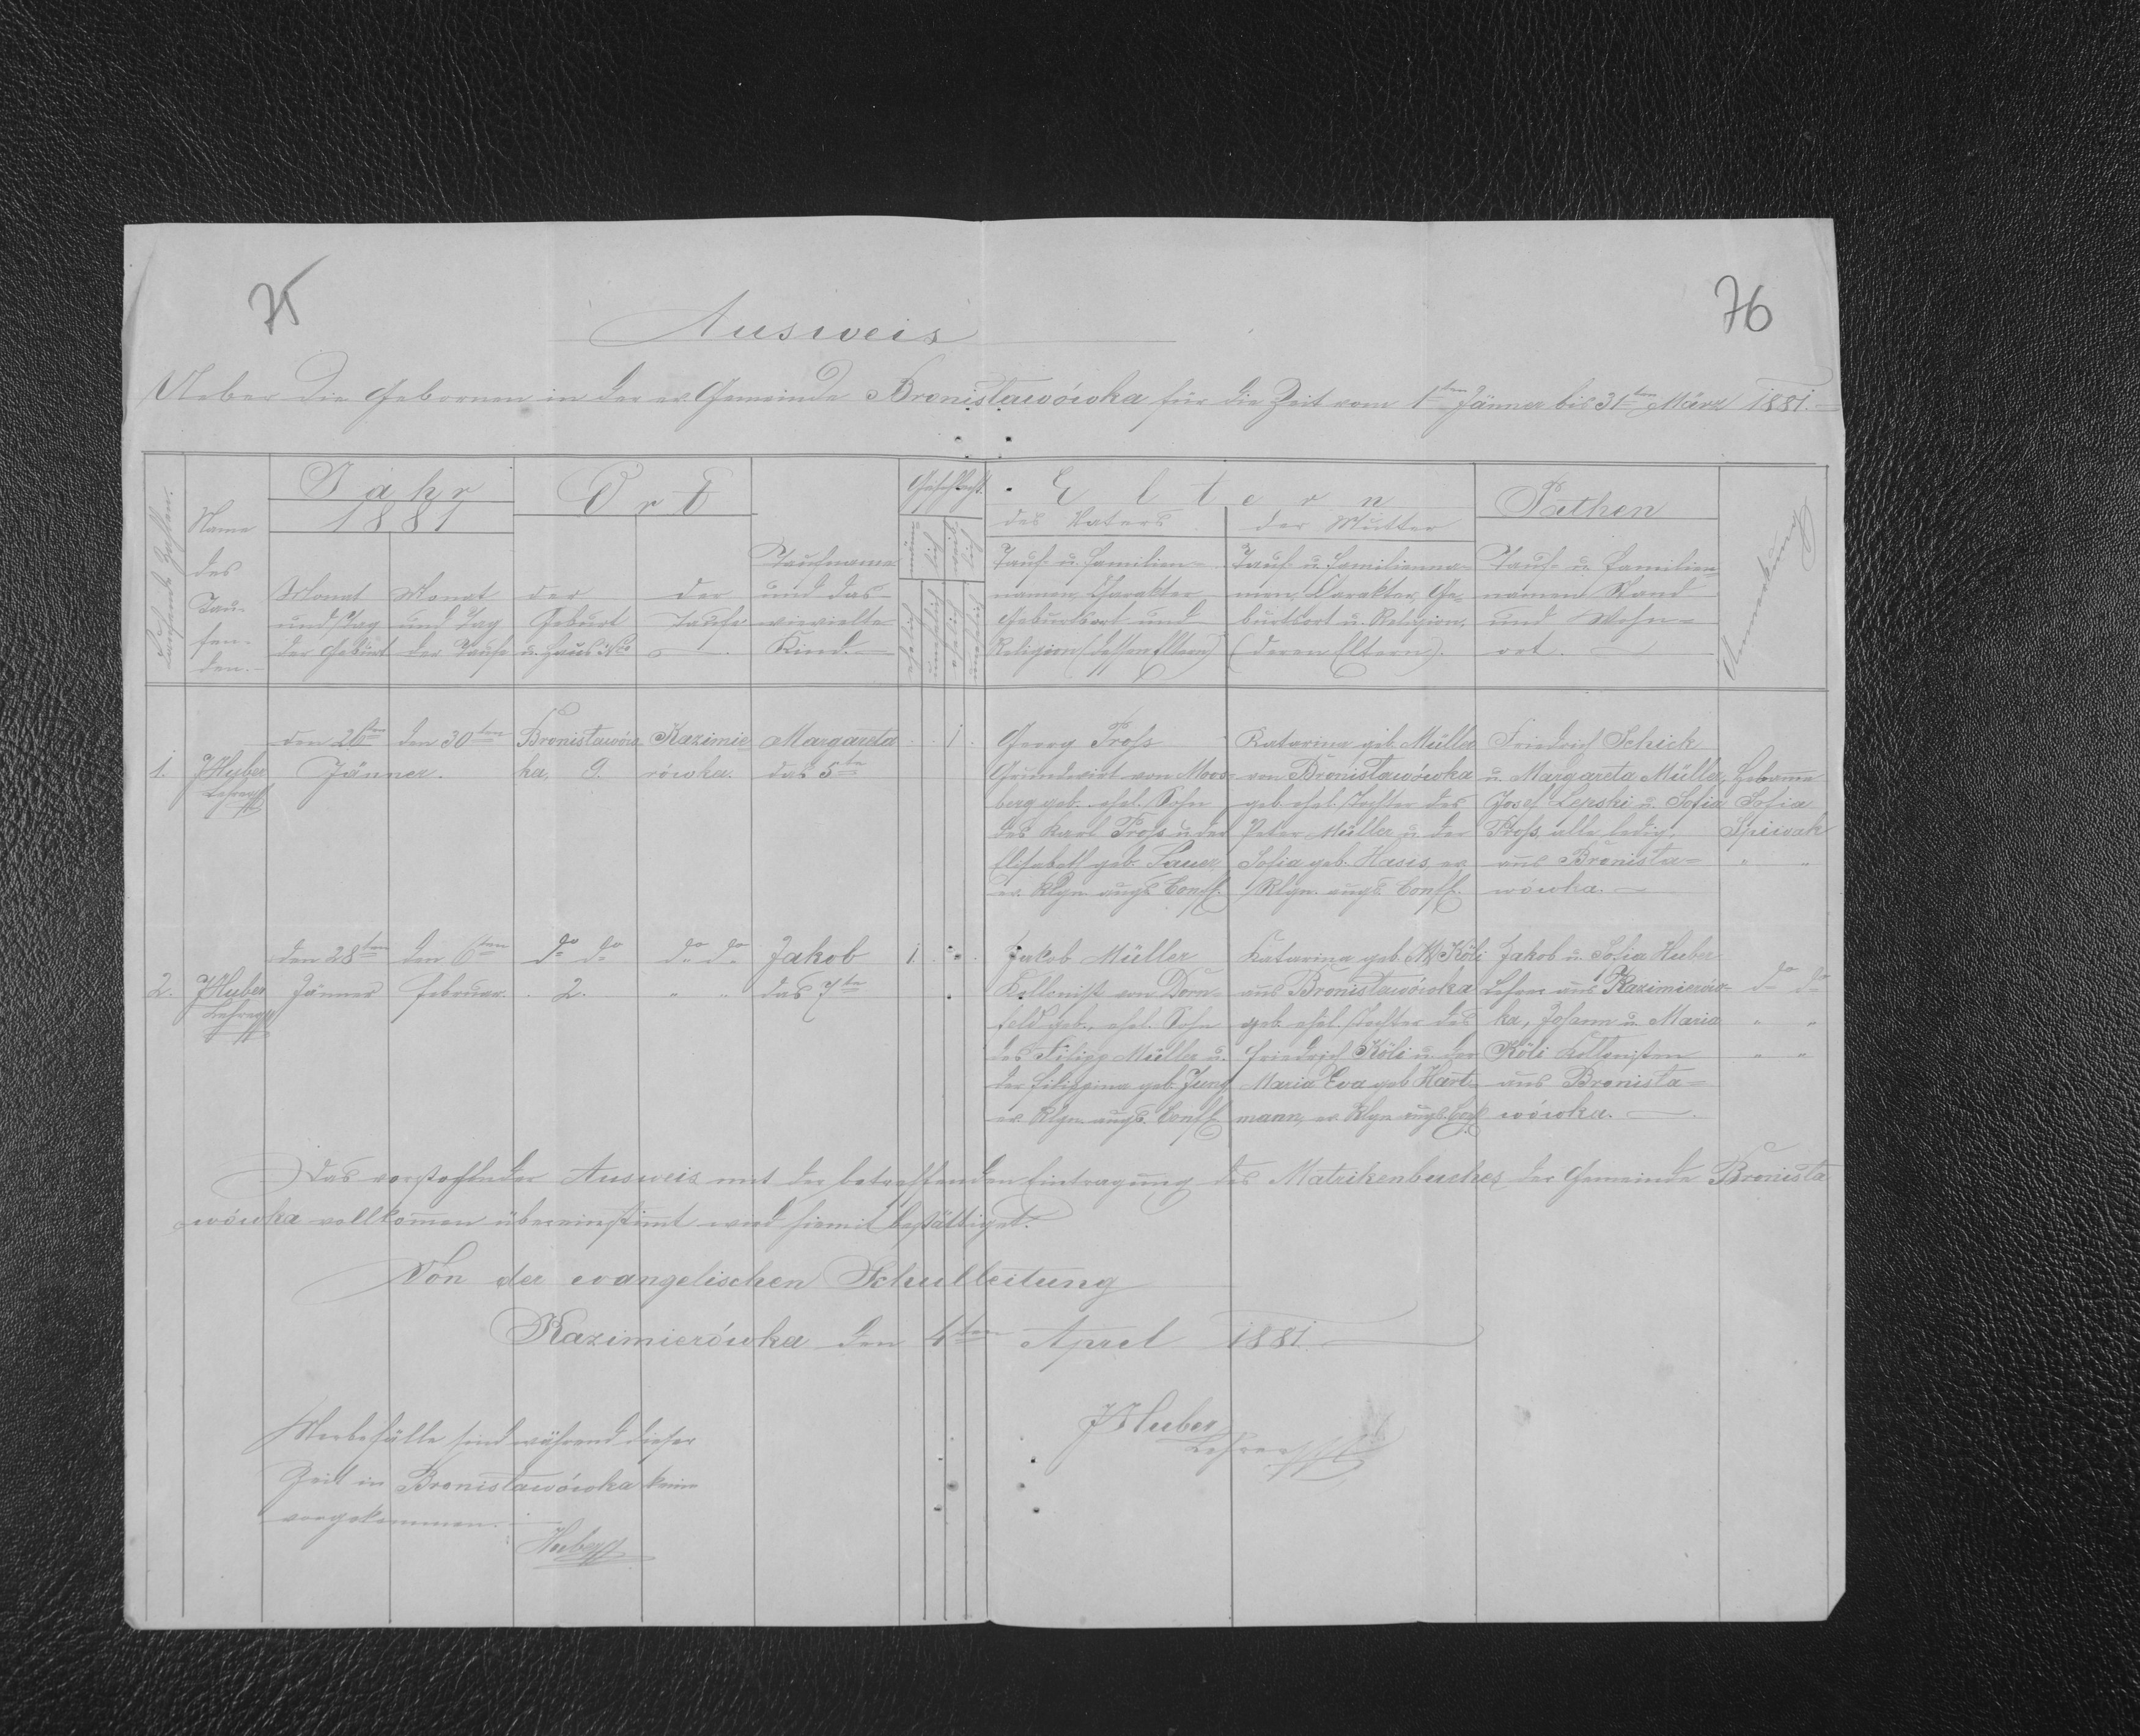 75
76
Ausweis
Ueber die Gebornen in der ev Gemeinde Bronisławówka für die Zeit vom 1ten Jänner bis 31ten März 1881.
Laufende Zahlen.
Name
des
Tau-
fen-
den.
Jahr
1881
Monat
und Tag
der Geburt
Monat
und Tag
der Taufe
Ort
der
Geburt
u. Haus No
der
Taufe
Taufname
und das
wievielte
Kind.
Geschlecht
männ
lich
weib
lich
ehelich
unehelich
ehelich
unehelich
Eltern
des Vaters
Tauf- u. Familien-
namen, Charakter
Geburtsort und
Religion (dessen Eltern)
der Mutter
Tauf- u. Familienna-
men, Charakter, Ge-
burtsort u. Religion,
(deren Eltern).
Pathen
Tauf- u. Familien-
namen Stand
und Wohn-
ort.
Anmerkung
1.
JHuber
Lehrer
den 26ten
den 30ten
Jänner.
Bronisławów
ka. 9.
Kazimie
rówka.
Margareta
das 5te
1
Georg Proß
Grundwirt von Moos-
berg geb. ehel. Sohn
des Karl Proß u. der
Elisabeth geb. Sauer,
ev. Rlgn. augs. Conff.
Katarina geb. Müller
von Bronisławówka
geb. ehel. Tochter des
Peter Müller u. der
Sofia geb. Hasis ev
Rlgn. augs. Conff.
Friedrich Schick
u. Margareta Müller,
Josef Lepski u. Sofia
Proß, alle ledig,
aus Bronisła-
wówka.
Hebame
Sofia
Spiwak
" "
2.
JHuber
Lehrer
den 28ten
Jänner
den 6ten
Februar.
do do
2.
do do
" "
Jakob
das 7te
1.
Jakob Müller
Kollonist von Dorn-
feld geb., ehel. Sohn
des Filipp Müller u.
der Filippina geb. Jung
ev. Rlgn. augs. Conff.
Katarina geb. Köli
aus Bronisławówka
geb. ehel. Tochter des
Friedrich Köli u. der
Maria Eva geb. Hart-
mann, ev. Rlgn augs. Conf.
Jakob u. Sofia Huber
Lehrer aus Kazimierów-
ka, Johann u. Maria
Köli Kollonisten
aus Bronisła-
wówka.
do do
" "
" "
Das vorstehender Ausweis mit der betreffenden Eintragung des Matrikenbuches der Gemeinde Bronisła
wówka vollkomen übereinstimt wird hiemit bestättiget.
Von der evangelischen Schulleitung
Kazimierówka den 4ten April 1881.
JHuber
Lehrer
Sterbefälle sind während dieser
Zeit in Bronisławówka keine
vorgekommen.
Huber